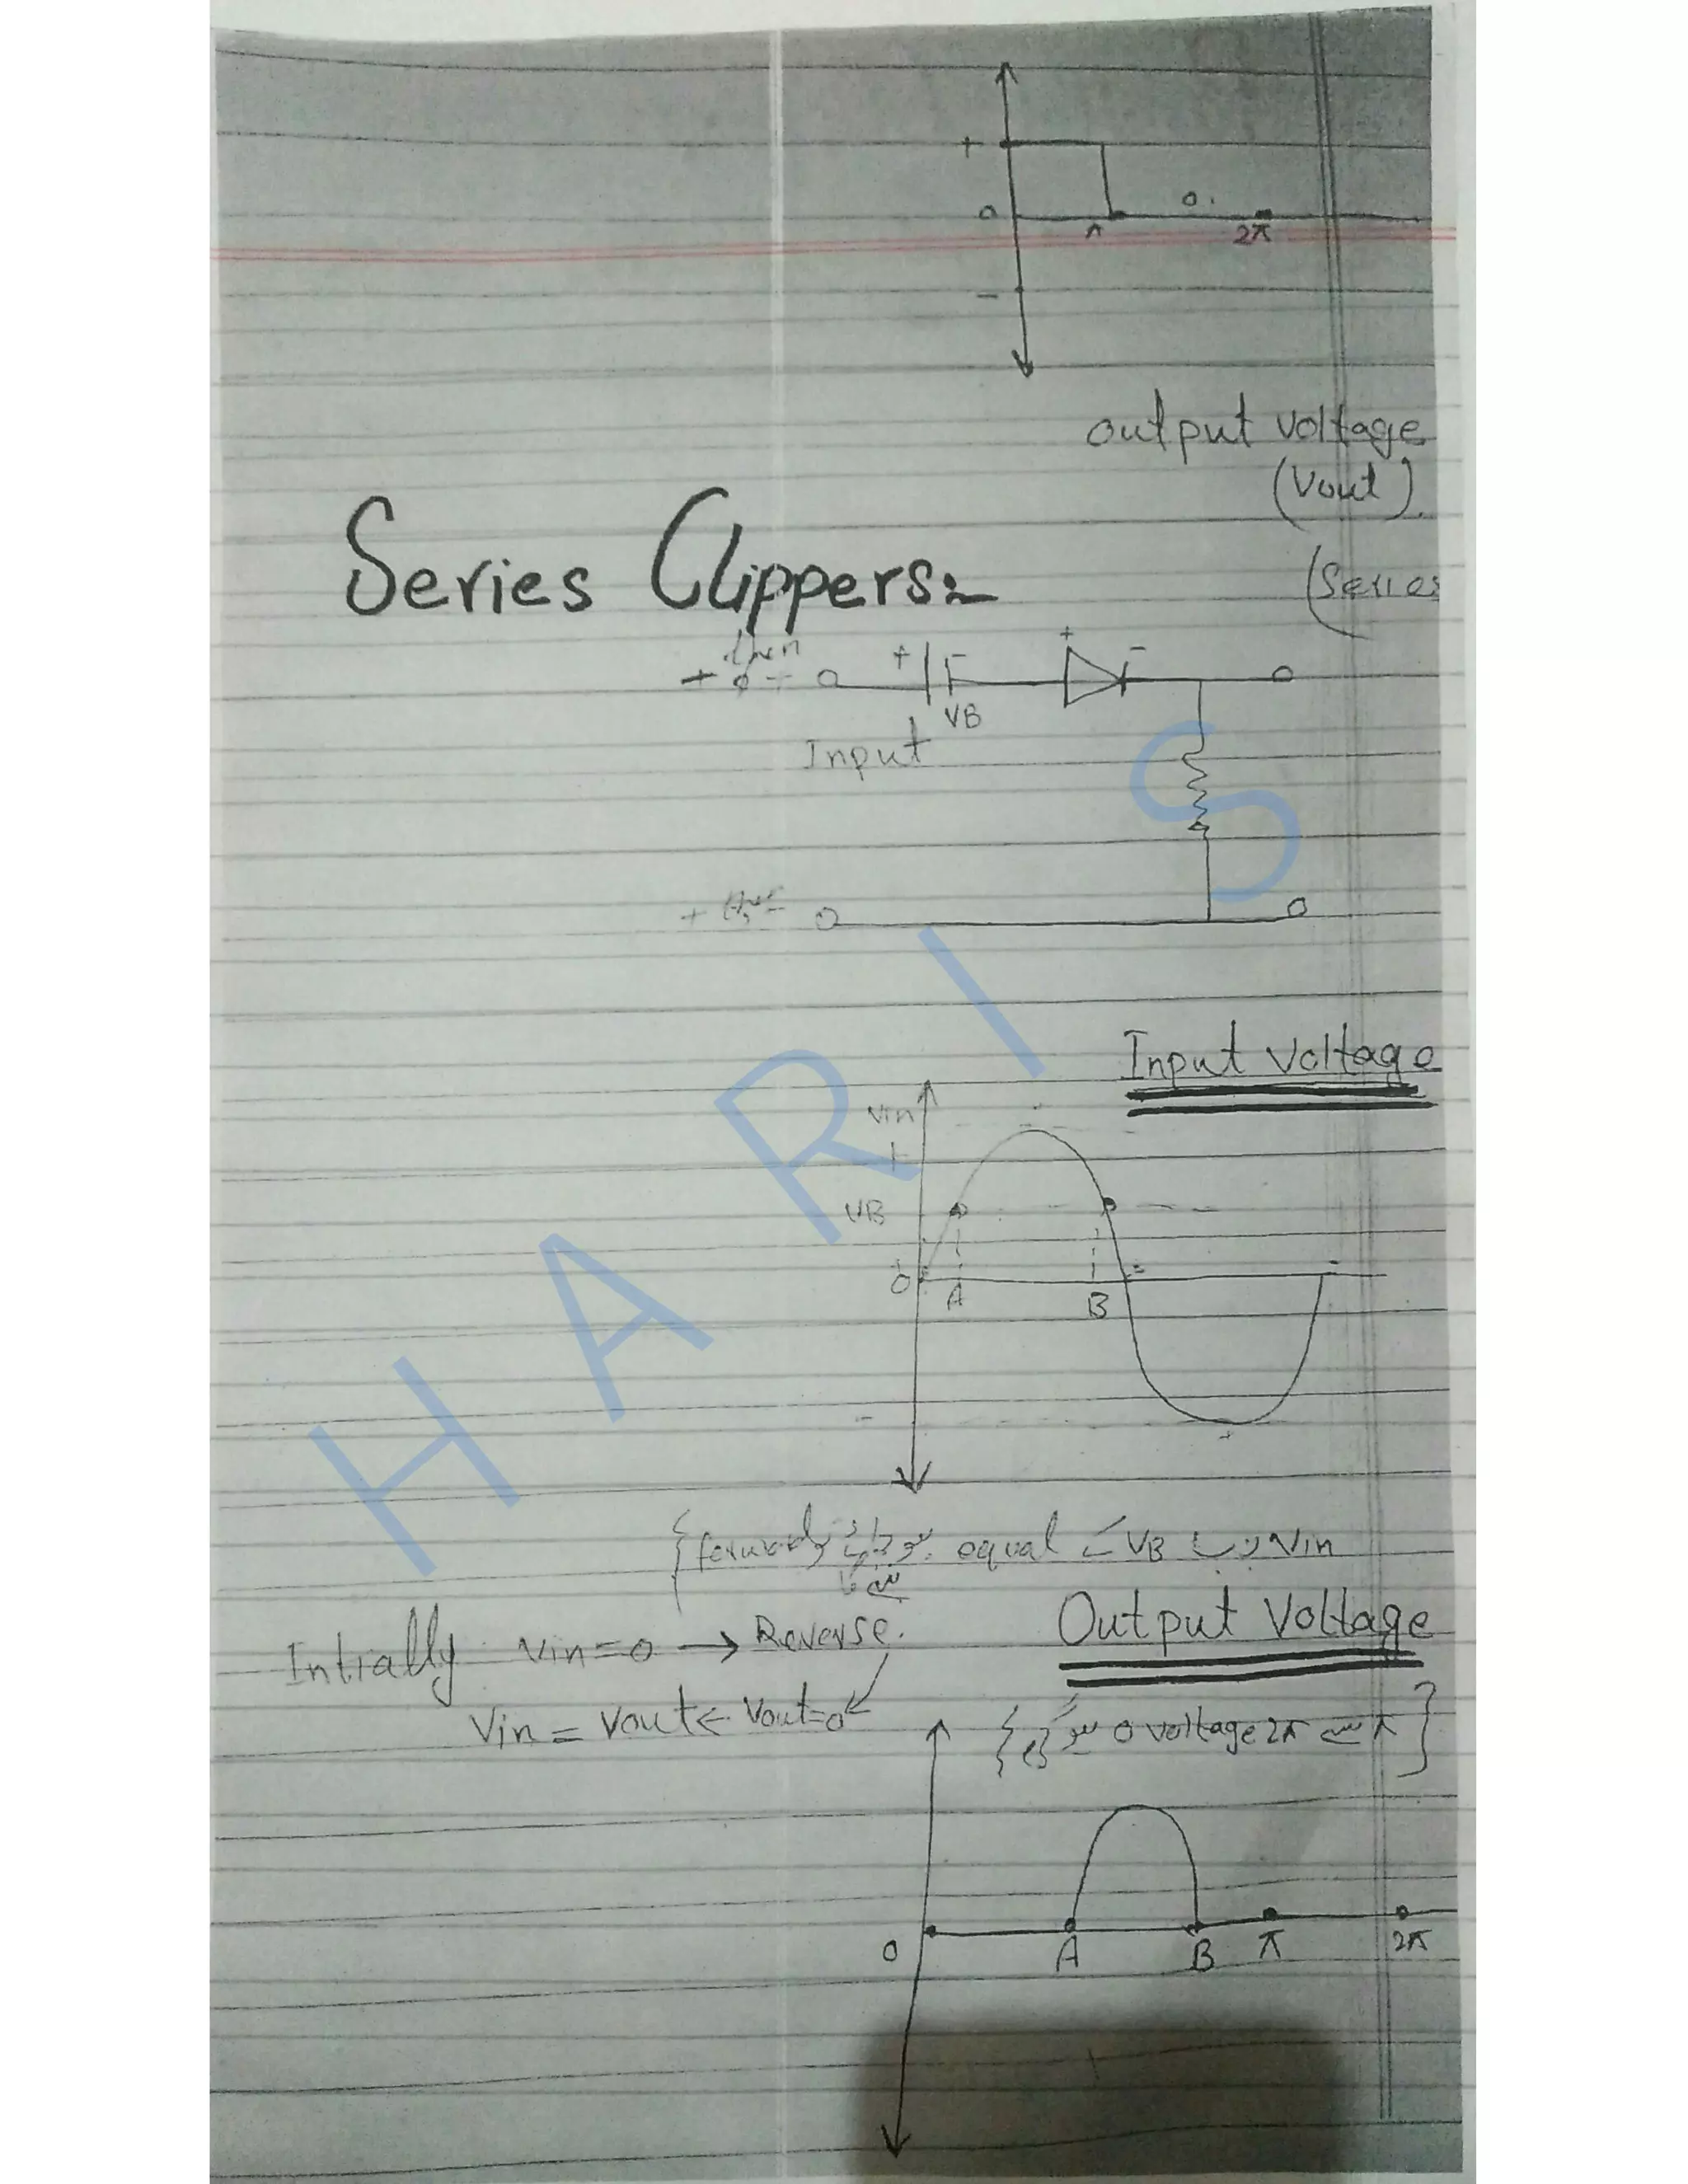 +
0
π
0
2π
-
output voltage
(Vout)
Series Clippers:-
(Series
+ then -
+ -
+ -
VB
Input
+ -
Input Voltage
Vin
+
VB
0
A
B
-
{ forward equal سے VB جب Vin
Output Voltage
Intially Vin=0 → Reverse.
Vin = Vout ← Vout=0
{ 0 voltage 2π سے π }
0
A
B
π
2π
HARIS